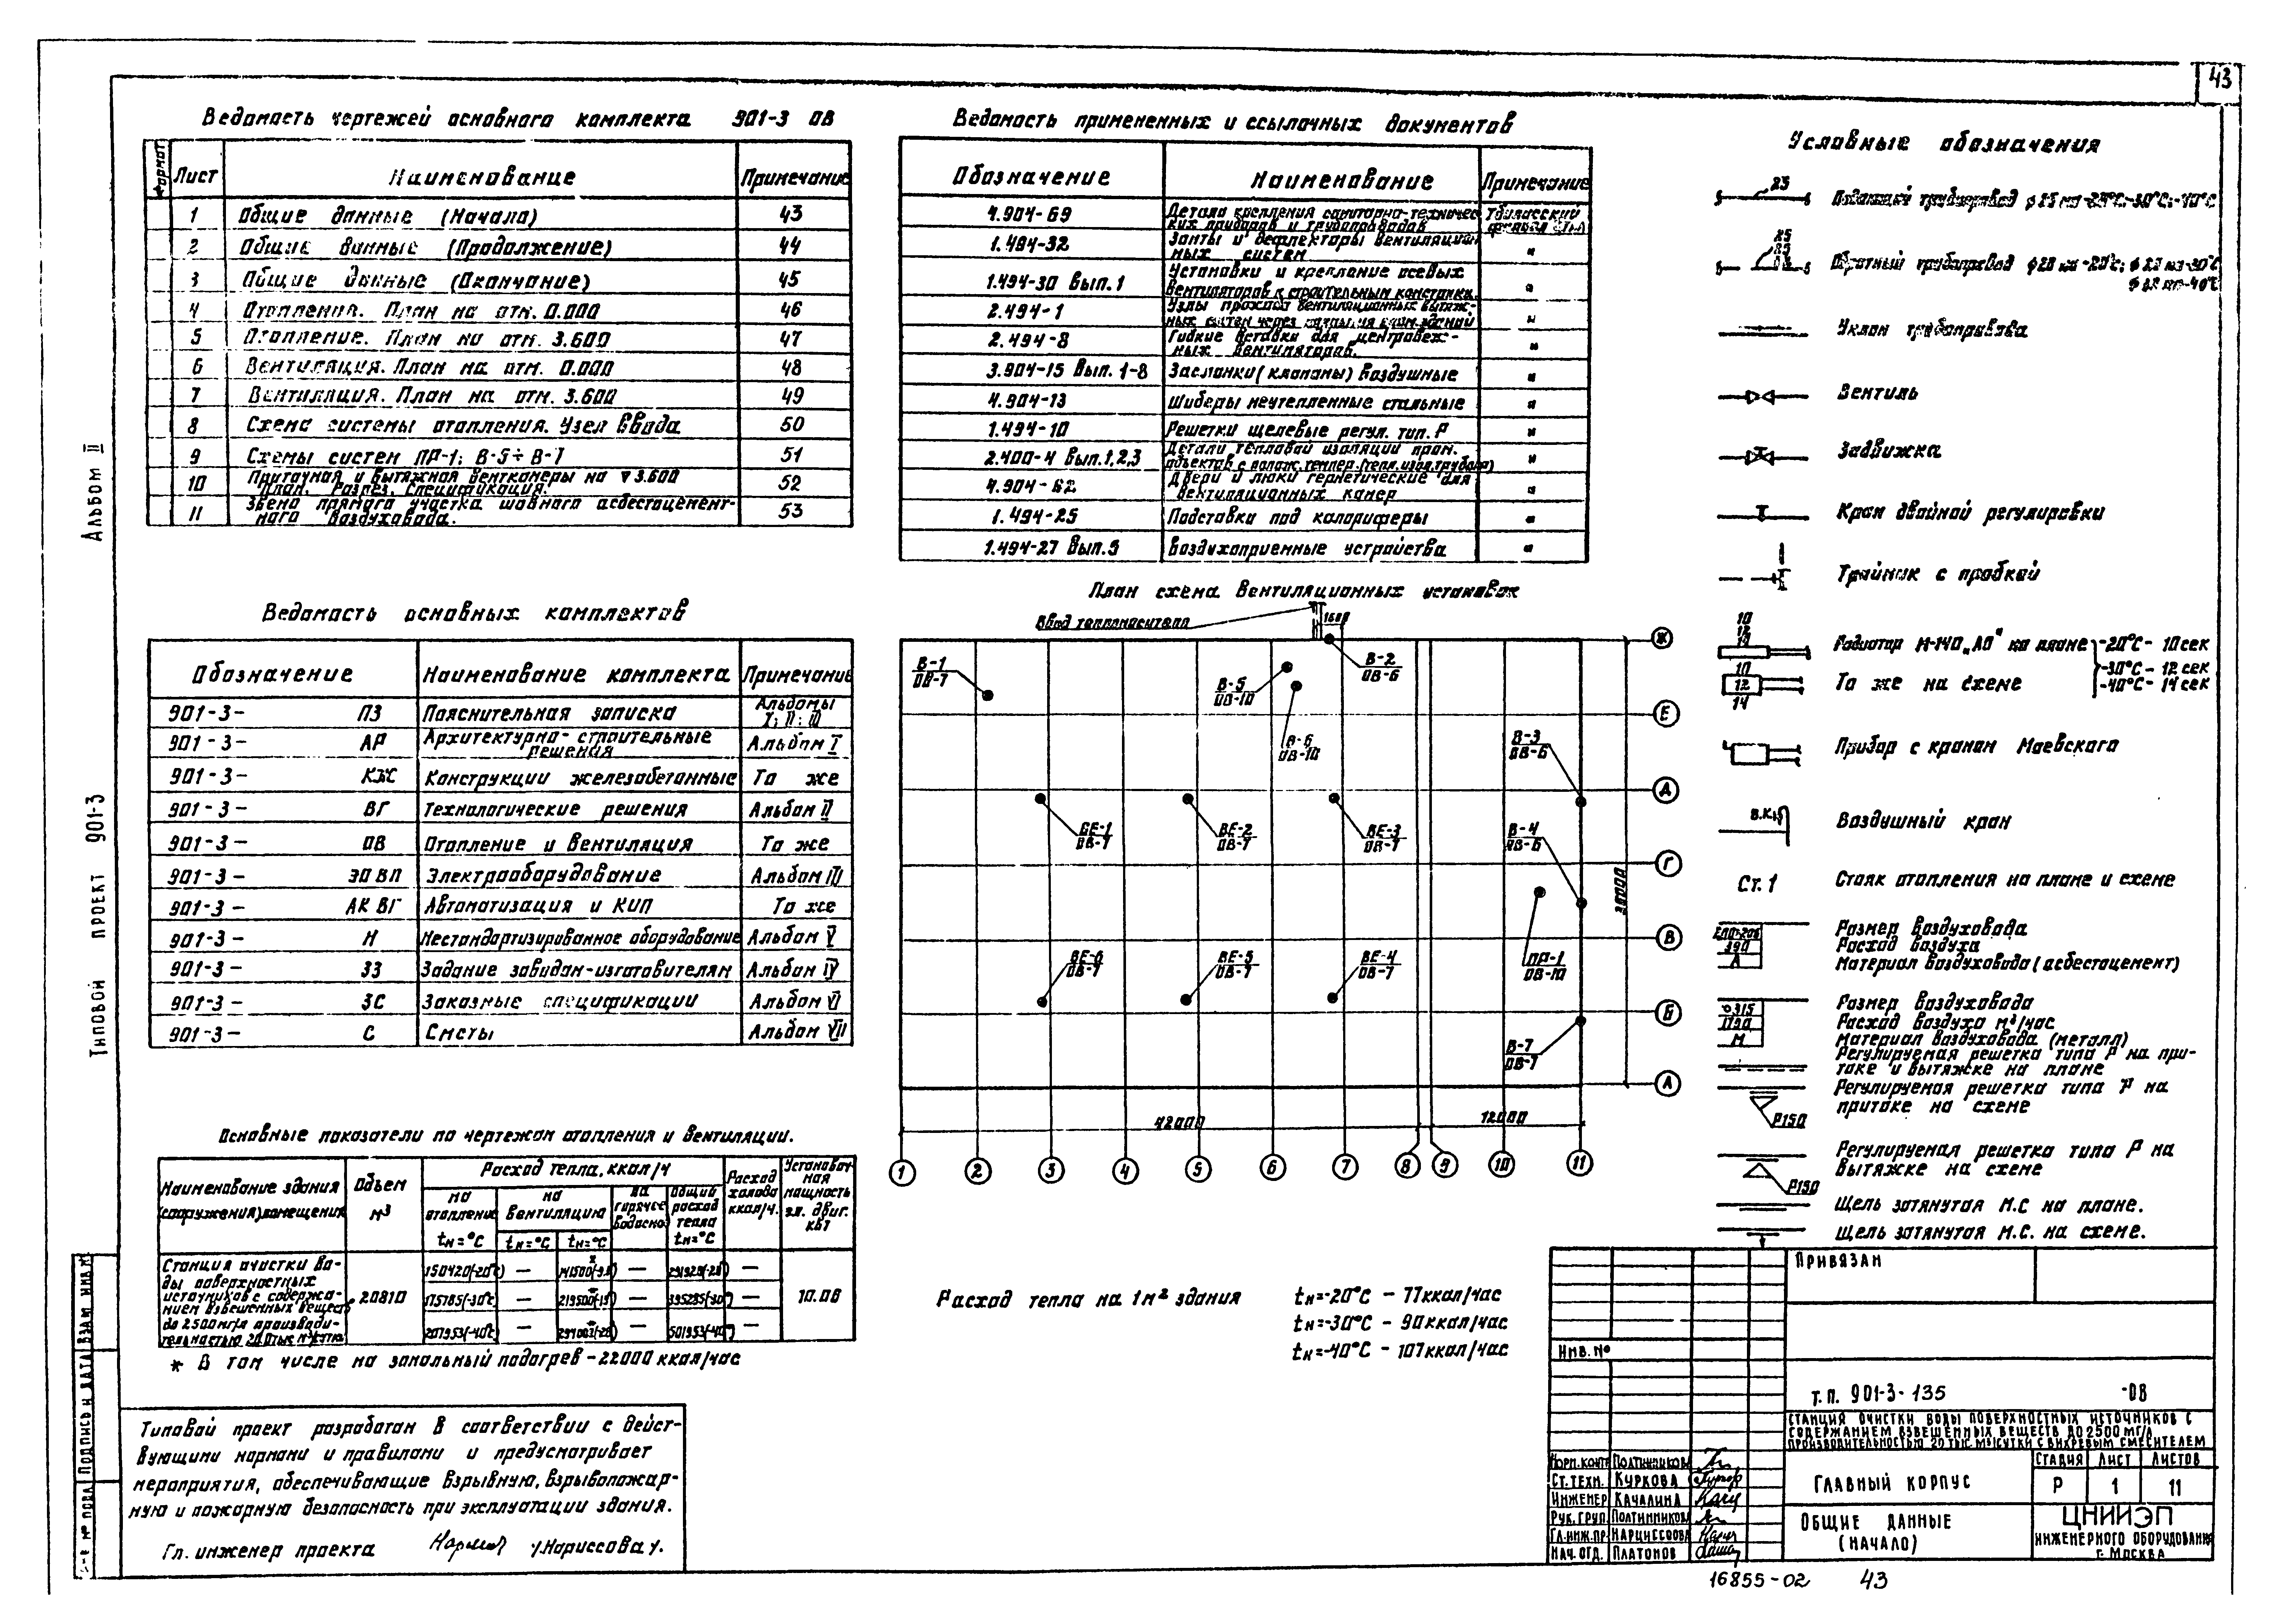 43
Ведомость чертежей основного комплекта 901-3 ОВ
Формат Лист Наименование Примечание
1 Общие данные (Начало) 43
2 Общие данные (Продолжение) 44
3 Общие данные (Окончание) 45
4 Отопления. План на отм. 0.000 46
5 Отопление. План на отм. 3.600 47
6 Вентиляция. План на отм. 0.000 48
7 Вентиляция. План на отм. 3.600 49
8 Схема системы отопления. Узел ввода 50
9 Схемы систем ПР-1; В-5÷В-7 51
10 Приточная и вытяжная венткамеры на ▽ 3.600
План. Разрез. Спецификация. 52
11 Звено прямого участка шовного асбестоцемент-
ного воздуховода. 53
Ведомость примененных и ссылочных документов
Обозначение Наименование Примечание
4.904-69 Детали крепления санитарно-техничес-
ких приборов и трубопроводов Тбилисский филиал
1.494-32 Зонты и дефлекторы вентиляцион-
ных систем "
1.494-30 Вып.1 Установки и крепление осевых
вентиляторов к строительным "
2.494-1 Узлы прохода вентиляционных вытяж-
ных систем через "
2.494-8 Гибкие вставки для центробеж-
ных вентиляторов. "
3.904-15 Вып. 1-8 Заслонки (клапаны) воздушные "
4.904-13 Шиберы неутепленные стальные "
1.494-10 Решетки щелевые регул. тип. Р "
2.400-4 Вып.1,2,3 Детали тепловой изоляции пром.
объектов с "
4.904-62 Двери и люки герметические для
вентиляционных камер "
1.494-25 Подставки под калориферы "
1.494-27 Вып.5 Воздухоприемные устройства "
Условные обозначения
25 Подающий трубопровод ф 25 на -20°С;-30°С;-40°С
25 Обратный трубопровод
Уклон трубопровода
Вентиль
Задвижка
Кран двойной регулировки
Тройник с пробкой
10
12
14 Радиатор М-140 „АО" на плане -20°С - 10 сек
-30°С - 12 сек
10
12
14 То же на схеме -40°С - 14 сек
Прибор с краном Маевского
В.К. Воздушный кран
Ст. 1 Стояк отопления на плане и схеме
Размер воздуховода
390 Расход воздуха
А Материал воздуховода (асбестоцемент)
Размер воздуховода
ф315 Расход воздуха м³/час
М Материал воздуховода (металл)
Регулируемая решетка типа Р на при-
токе и вытяжке на плане
Регулируемая решетка типа Р на
притоке на схеме
Р150
Регулируемая решетка типа Р на
вытяжке на схеме
Р150
Щель затянутая М.С на плане.
Щель затянутая М.С. на схеме.
Ведомость основных комплектов
Обозначение Наименование комплекта Примечание
901-3- ПЗ Пояснительная записка Альбомы
I; II; III
901-3- АР Архитектурно-строительные
решения Альбом I
901-3- КЖ Конструкции железобетонные То же
901-3- ВГ Технологические решения Альбом II
901-3- ОВ Отопление и вентиляция То же
901-3- ЭО ВП Электрооборудование Альбом III
901-3- АК ВГ Автоматизация и КИП То же
901-3- Н Нестандартизированное оборудование Альбом V
901-3- ЗЗ Задание заводам-изготовителям Альбом IV
901-3- ЗС Заказные спецификации Альбом VI
901-3- С Сметы Альбом VII
План схема вентиляционных установок
Ввод теплоносителя
В-1
ОВ-7
В-5
ОВ-10
В-2
ОВ-6
В-6
ОВ-10
В-3
ОВ-6
ВЕ-1
ОВ-7
ВЕ-2
ОВ-7
ВЕ-3
ОВ-7
В-4
ОВ-6
ВЕ-6
ОВ-7
ВЕ-5
ОВ-7
ВЕ-4
ОВ-7
ПР-1
ОВ-10
В-7
ОВ-7
Ж
Е
Д
Г
В
Б
А
42000 12000
1 2 3 4 5 6 7 8 9 10 11
Основные показатели по чертежам отопления и вентиляции.
Наименование здания (сооружения), помещения
Объем м³
Расход тепла, ккал/ч
на отопление tн=°С
на вентиляцию tн=°С tн=°С
на горячее водосн.
Общий расход тепла tн=°С
Расход холода ккал/ч.
Установоч-ная мощность эл. двиг. кВт
Станция очистки во-
ды поверхностных
источников с содержа-
нием взвешенных веществ
до 2500 мг/л производи-
тельностью 20.0 тыс м³/сутки
20810
150420(-20°С) — —
175785(-30°С) — — 395285(-30°) —
207953(-40°С) — — 501953(-40°) —
* В том числе на зональный подогрев - 22000 ккал/час
Расход тепла на 1м² здания
tн=-20°С - 77 ккал/час
tн=-30°С - 90 ккал/час
tн=-40°С - 107 ккал/час
Типовой проект разработан в соответствии с дейст-
вующими нормами и правилами и предусматривает
мероприятия, обеспечивающие взрывную, взрывопожар-
ную и пожарную безопасность при эксплуатации здания.
Гл. инженер проекта
Привязан
Инв. №
Т.П. 901-3-135 -ОВ
Станция очистки воды поверхностных источников с
содержанием взвешенных веществ до 2500 мг/л
производительностью 20 тыс. м³/сутки с вихревым смесителем
Норм.контр Полтинников
Ст.техн. Куркова
Инженер Качалина
Рук.груп. Полтинников
Гл.инж.пр. Нарциссова
Нач.отд. Платонов
Главный корпус
Стадия Лист Листов
Р 1 11
Общие данные
(начало)
ЦНИИЭП
инженерного оборудования
г. Москва
16855-02 43
Альбом II
Типовой проект 901-3
Подпись и дата Взам инв №